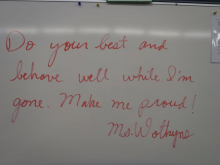 Do your best and
behave well while I'm
gone. Make me proud!
Ms.